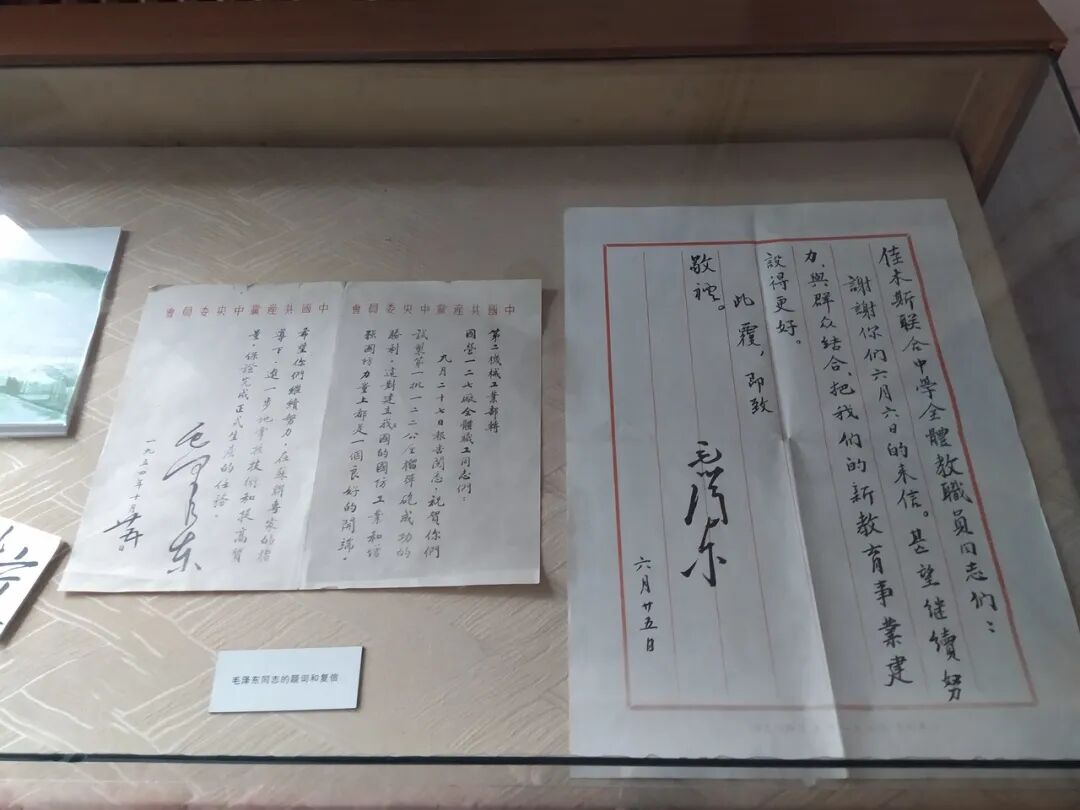 中國共產黨中央委員會
中國共產黨中央委員會
第二機械工業部轉
國營一二七廠全體職工同志們：
九月二十七日報告閱悉，祝賀你們
試製第一批一二二公厘榴彈砲成功的
勝利。這對建立我國的國防工業和增
強國防力量上都是一個良好的開端。
希望你們繼續努力，在蘇聯專家的指
導下，進一步地掌握技術和提高質
量，保證完成正式生產的任務。
毛澤東
一九五四年十月廿五日
毛泽东同志的题词和复信
佳木斯联合中學全體教職員同志们：
謝謝你们六月六日的来信。甚望继續努
力，與群众结合，把我们的新教育事業建
設得更好。
此覆，即致
敬禮。
毛澤东
六月廿五日